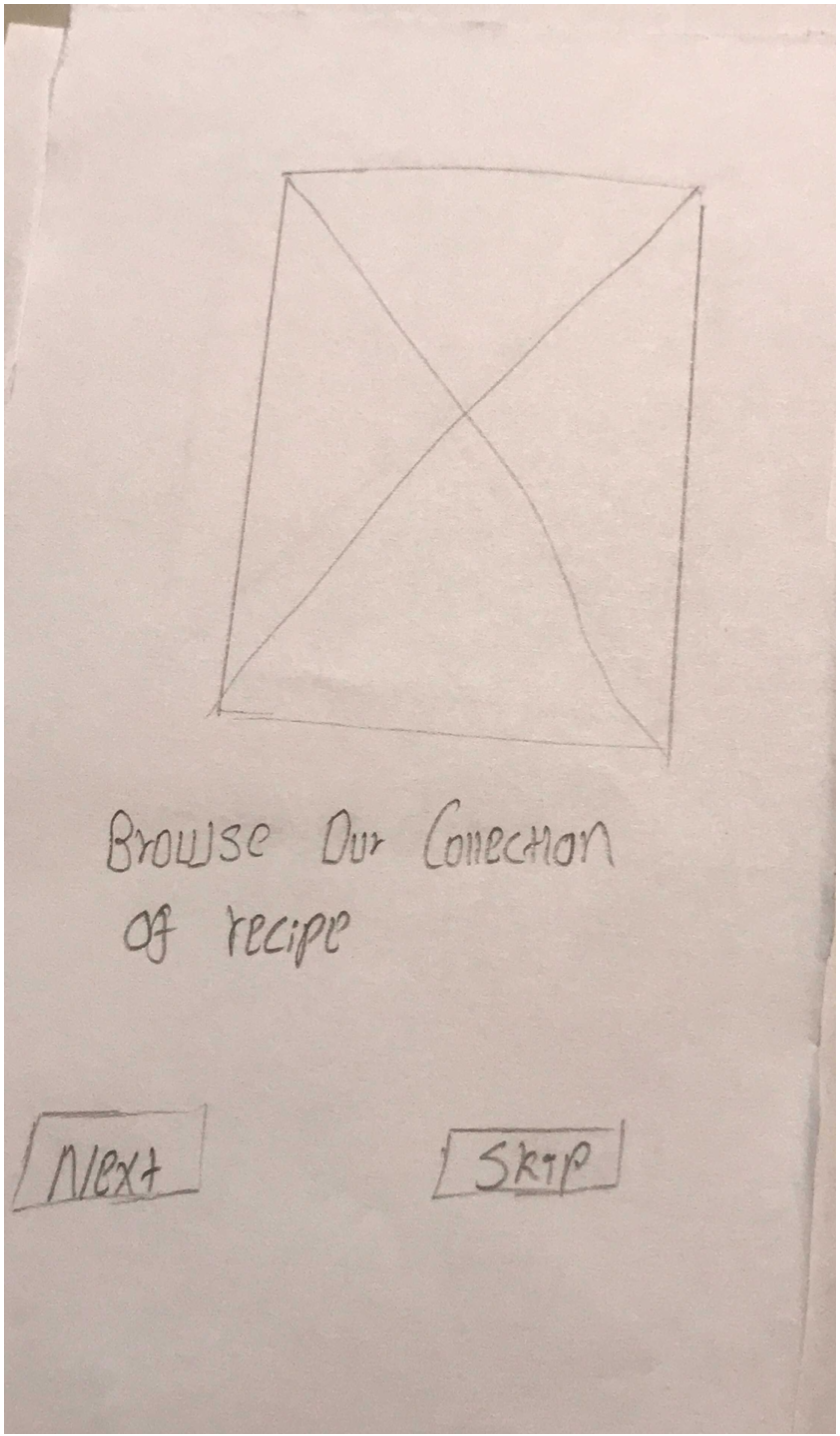 Browse Our Collection
of recipe
Next
Skip